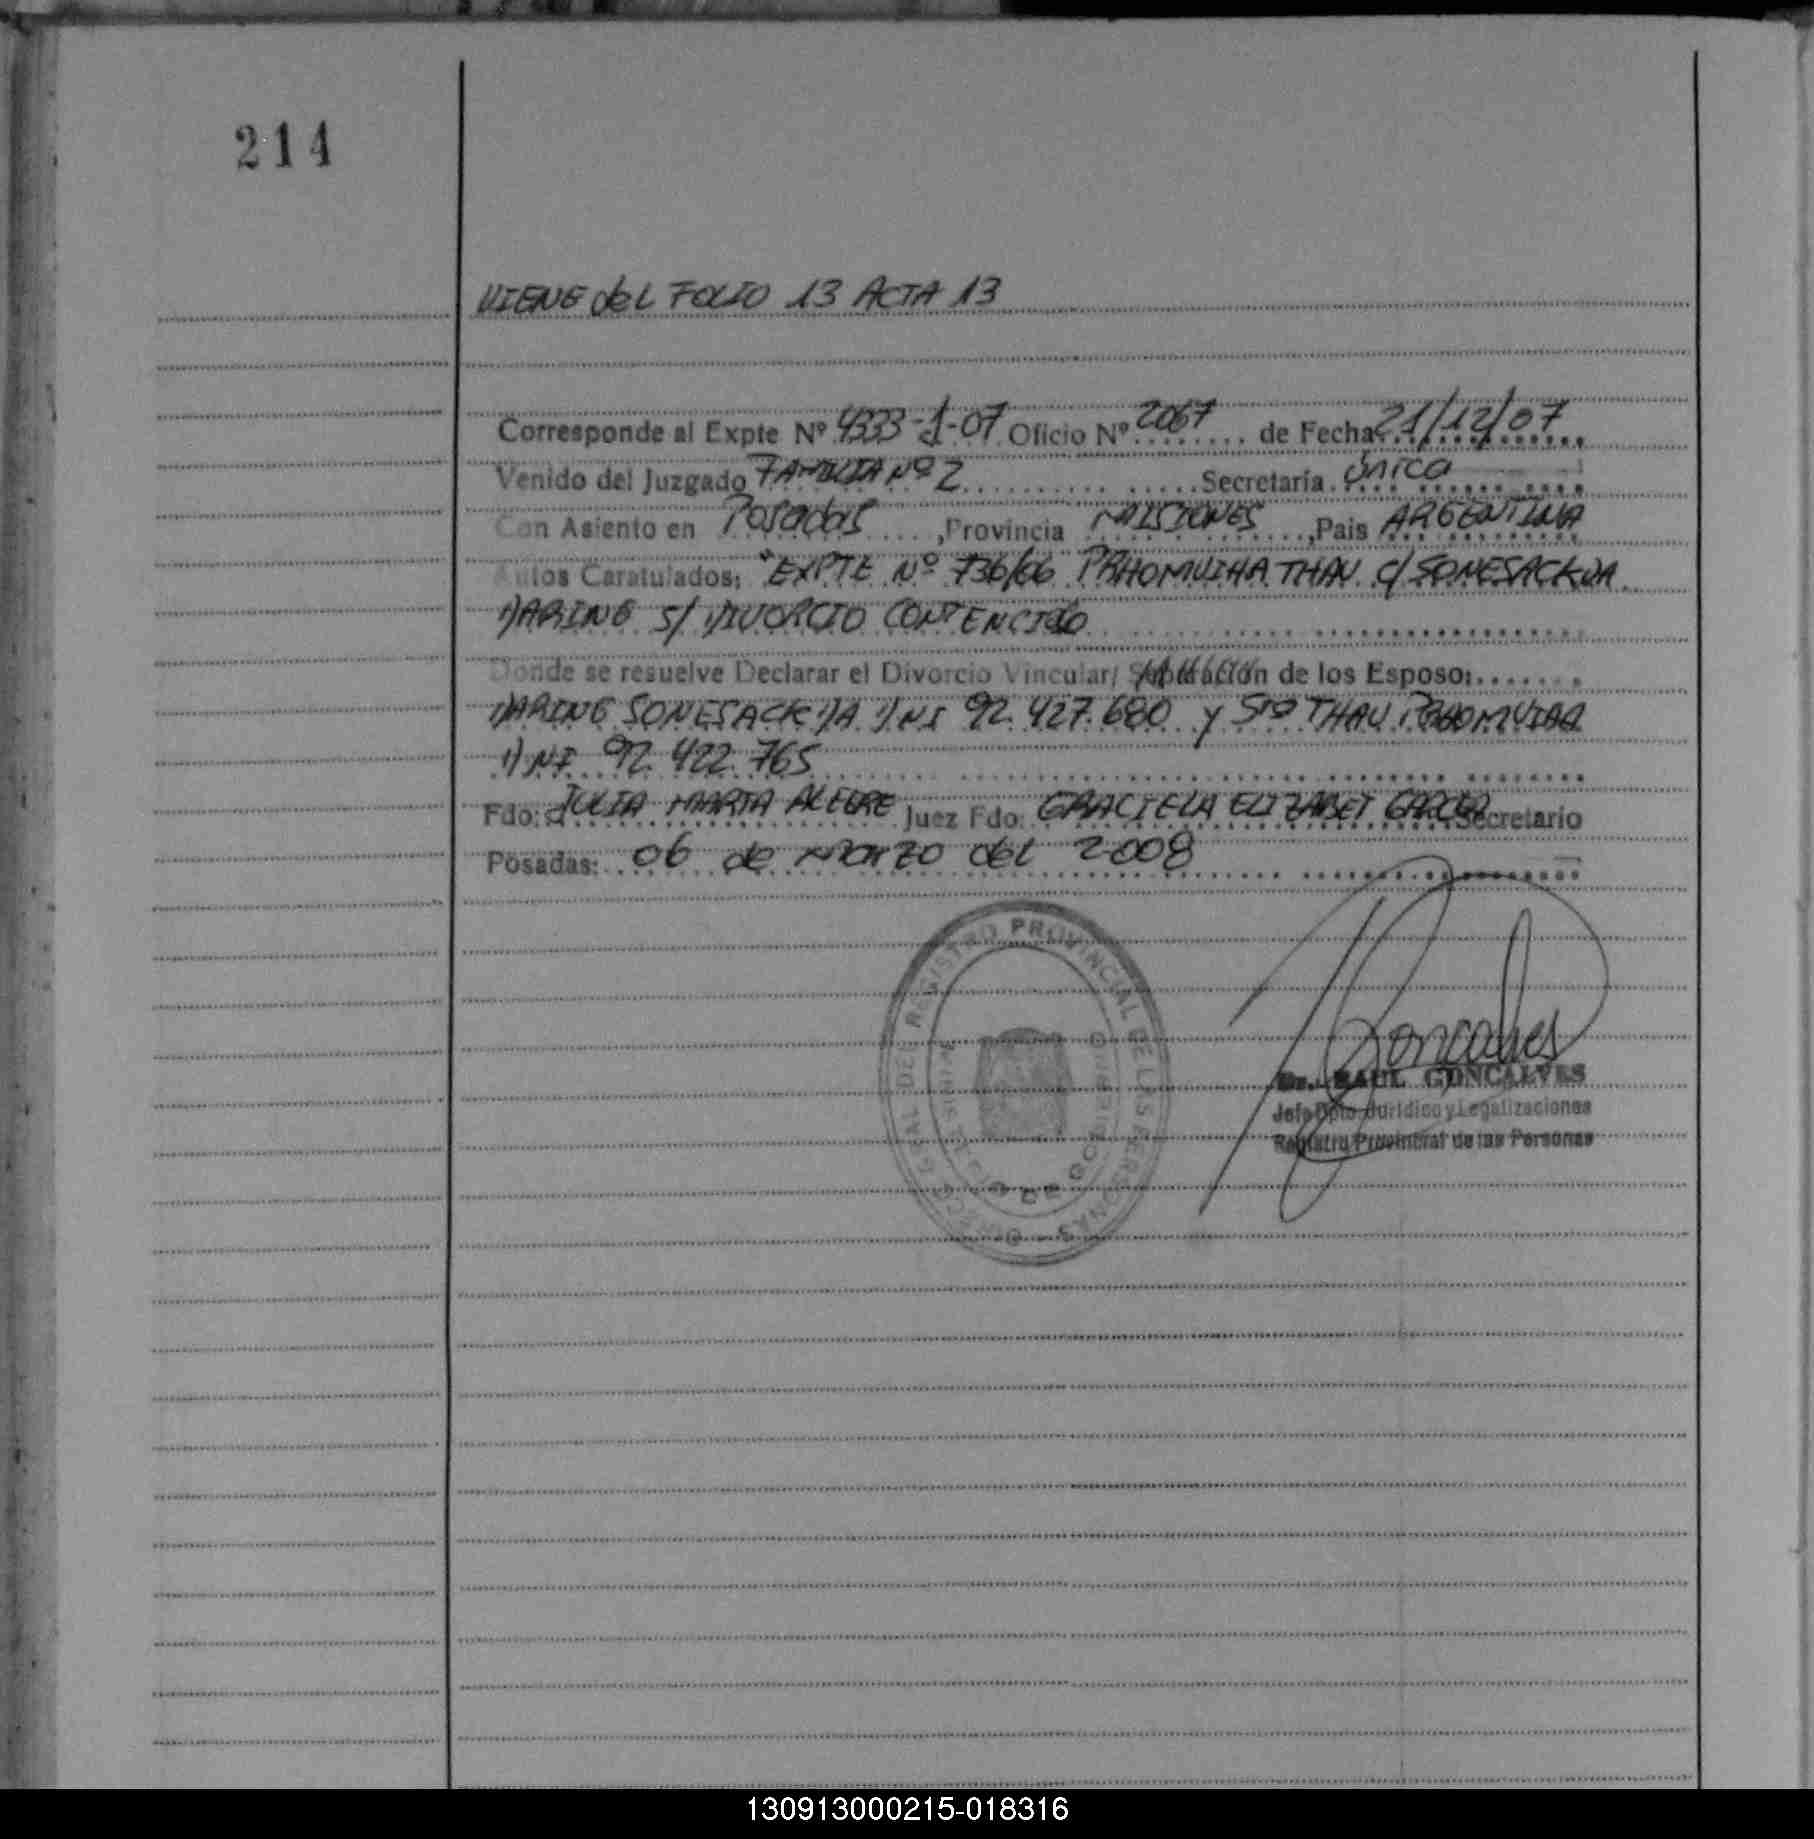 214
VIENE del FOLIO 13 ACTA 13
Corresponde al Expte Nº 4333-J-07 Oficio Nº 2067 de Fecha 21/12/07
Venido del Juzgado FAMILIA Nº 2 Secretaría única
Con Asiento en Posadas, Provincia MISIONES, Pais ARGENTINA
Autos Caratulados; "EXPTE Nº 736/06 PRHOMVIHA THAU C/ SONESACKDA
DARING S/ DIVORCIO CONTENCIOSO
Donde se resuelve Declarar el Divorcio Vincular/ Separación de los Esposo:
DARING SONESACKDA DNI 92.427.680 y Sra THAU
DNI 92.422.765
Fdo: JULIA MARTA ALEGRE Juez Fdo: GRACIELA ELIZABET GARCIA Secretario
Posadas: 06 de Marzo del 2008
DIRECC. GRAL DEL REGISTRO PROVINCIAL DE LAS PERSONAS
Goncalves
Dr. RAUL GONCALVES
Jefe Dpto Jurídico y Legalizaciones
Registro Provincial de las Personas
130913000215-018316